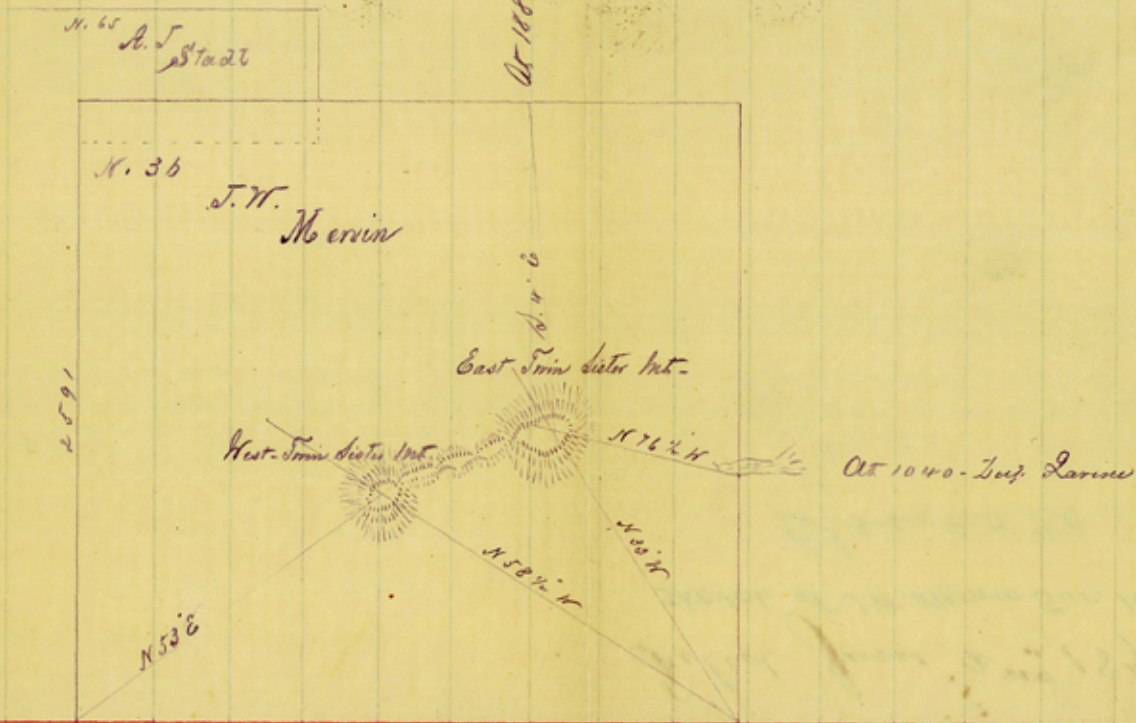 N. 65
A. J
Stadt
At 188
N. 36
J. W.
Mervin
S. 4° E
East Twin Sister Mt-
West-Twin Sister Mt.
N 76 ½° W
At 1040 - Deep Ravine
N 33° W
N 58 ½° W
N 53° E
2591